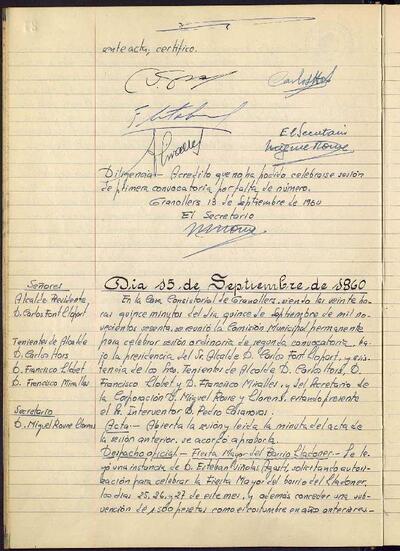 ente acta, certifico.
Carlos Hors
El Secretario
Diligencia - Acredito que no ha podido celebrarse sesión
de primera convocatoria por falta de número.
Granollers 13 de Septiembre de 1960
El Secretario
Dia 15 de Septiembre de 1960
Señores
Alcalde Presidente
D. Carlos Font Llopart
Tenientes de Alcalde
D. Carlos Hors
D. Francisco Llobet
D. Francisco Miralles
Secretario
D. Miguel Roure Llorens
En la Casa Consistorial de Granollers, siendo las veinte ho-
ras quince minutos del dia quince de Septiembre de mil no-
vecientos sesenta, se reunió la Comisión Municipal permanente
para celebrar sesión ordinaria de segunda convocatoria, ba-
jo la presidencia del Sr. Alcalde D. Carlos Font Llopart, y asis-
tencia de los Sres. Tenientes de Alcalde D. Carlos Hors, D.
Francisco Llobet y D. Francisco Miralles, y del Secretario de
la Corporación D. Miguel Roure y Llorens, estando presente
el Sr. Interventor D. Pedro Casanovas.
Acta.- Abierta la sesión y leida la minuta del acta de
la sesión anterior, se acordó aprobarla.
Despacho oficial - Fiesta Mayor del Barrio Lladoner.- Se le-
yó una instancia de D. Esteban Viñolas Agustí, solicitando autori-
zación para celebrar la Fiesta Mayor del barrio del Lladoner,
los dias 25, 26, y 27 de este mes, y además conceder una sub-
vención de 1,500 pesetas como es costumbre en años anteriores.-